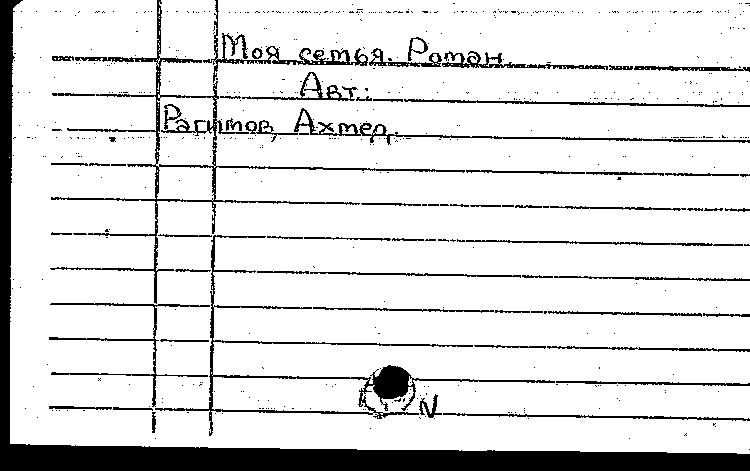 Моя семья. Роман.
Авт.:
Рагимов, Ахмед.
N